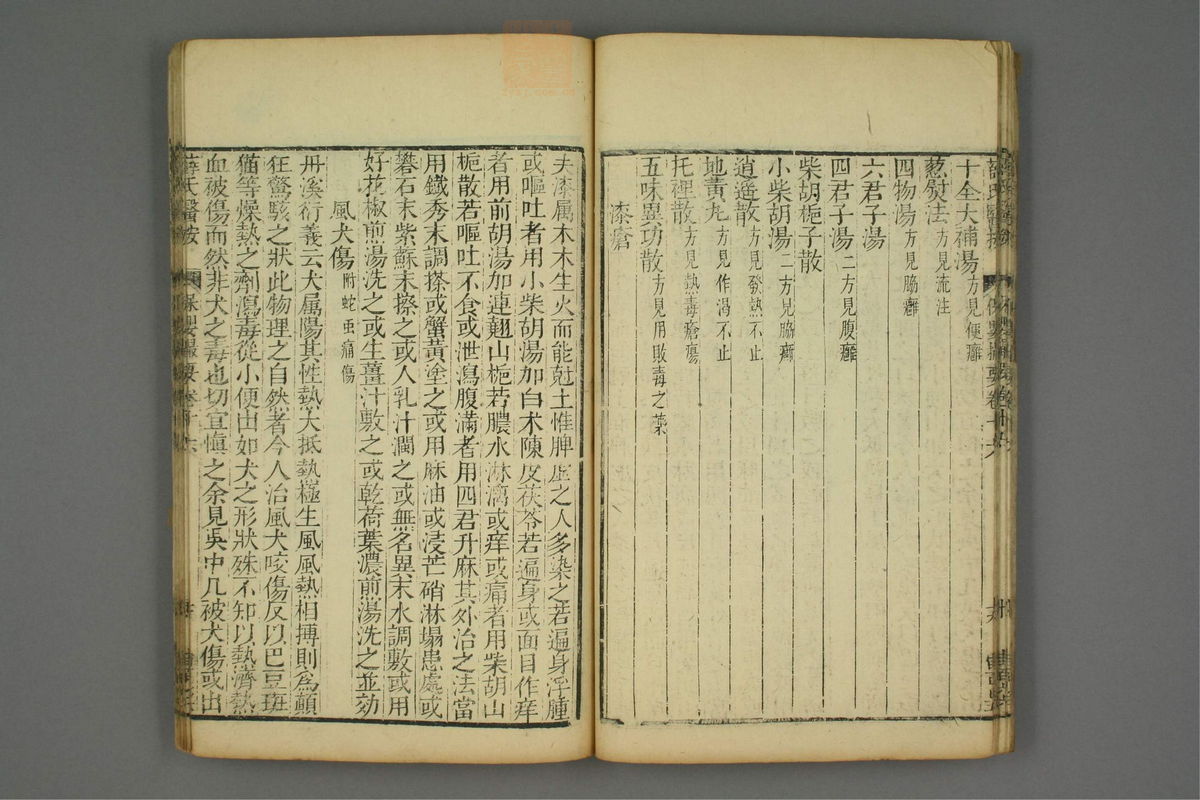 十全大補湯方見便癰
葱熨法方見流注
四物湯方見脇癰
六君子湯
四君子湯二方見腹癰
柴胡梔子散
小柴胡湯二方見脇癰
逍遥散方見發熱不止
地黃丸方見作渴不止
托裡散方見熱毒瘡瘍
五味異功散方見用敗毒之藥
漆瘡
夫漆属木木生火而能尅土惟脾虛之人多染之若遍身浮腫
或嘔吐者用小柴胡湯加白朮陳皮茯苓若遍身或面目作痒
者用前胡湯加連翹山梔若膿水淋漓或痒或痛者用柴胡山
梔散若嘔吐不食或泄瀉腹滿者用四君升麻其外治之法當
用鐵秀末調搽或蟹黃塗之或用麻油或浸芒硝淋塌患處或
礬石末紫蘇末摻之或人乳汁潤之或無名異末水調敷或用
好花椒煎湯洗之或生薑汁敷之或乾荷葉濃煎湯洗之並効
風犬傷附蛇䖝痛傷
丹溪衍義云犬属陽其性熱大抵熱極生風風熱相搏則爲顛
狂驚駭之狀此物理之自然者今人治風犬咬傷反以巴豆斑
猫等燥熱之劑瀉毒從小便出如犬之形狀殊不知以熱濟熱
血被傷而然非犬之毒也切宜愼之余見吳中凡被犬傷或出
薛氏醫按 保嬰撮要卷十六